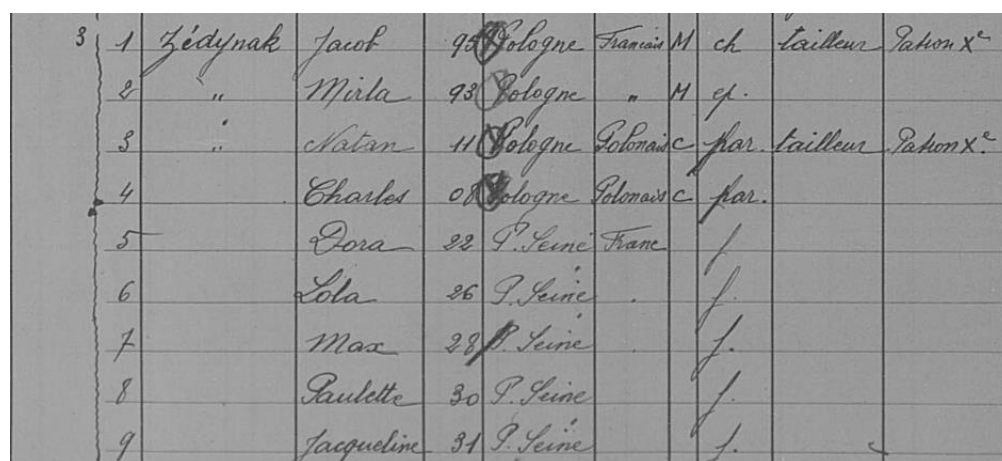 3 1 Zédynak Jacob 95 Pologne Francais M ch tailleur Patron Xe
2 " Mirla 93 Pologne " M ep.
3 " Natan 11 Pologne Polonais C par. tailleur Patron Xe
4 Charles 08 Pologne Polonais C par.
5 Dora 22 P. Seine Franc f
6 Lola 26 P. Seine . f.
7 Max 28 P. Seine . f.
8 Paulette 30 P. Seine f.
9 Jacqueline 31 P. Seine f.